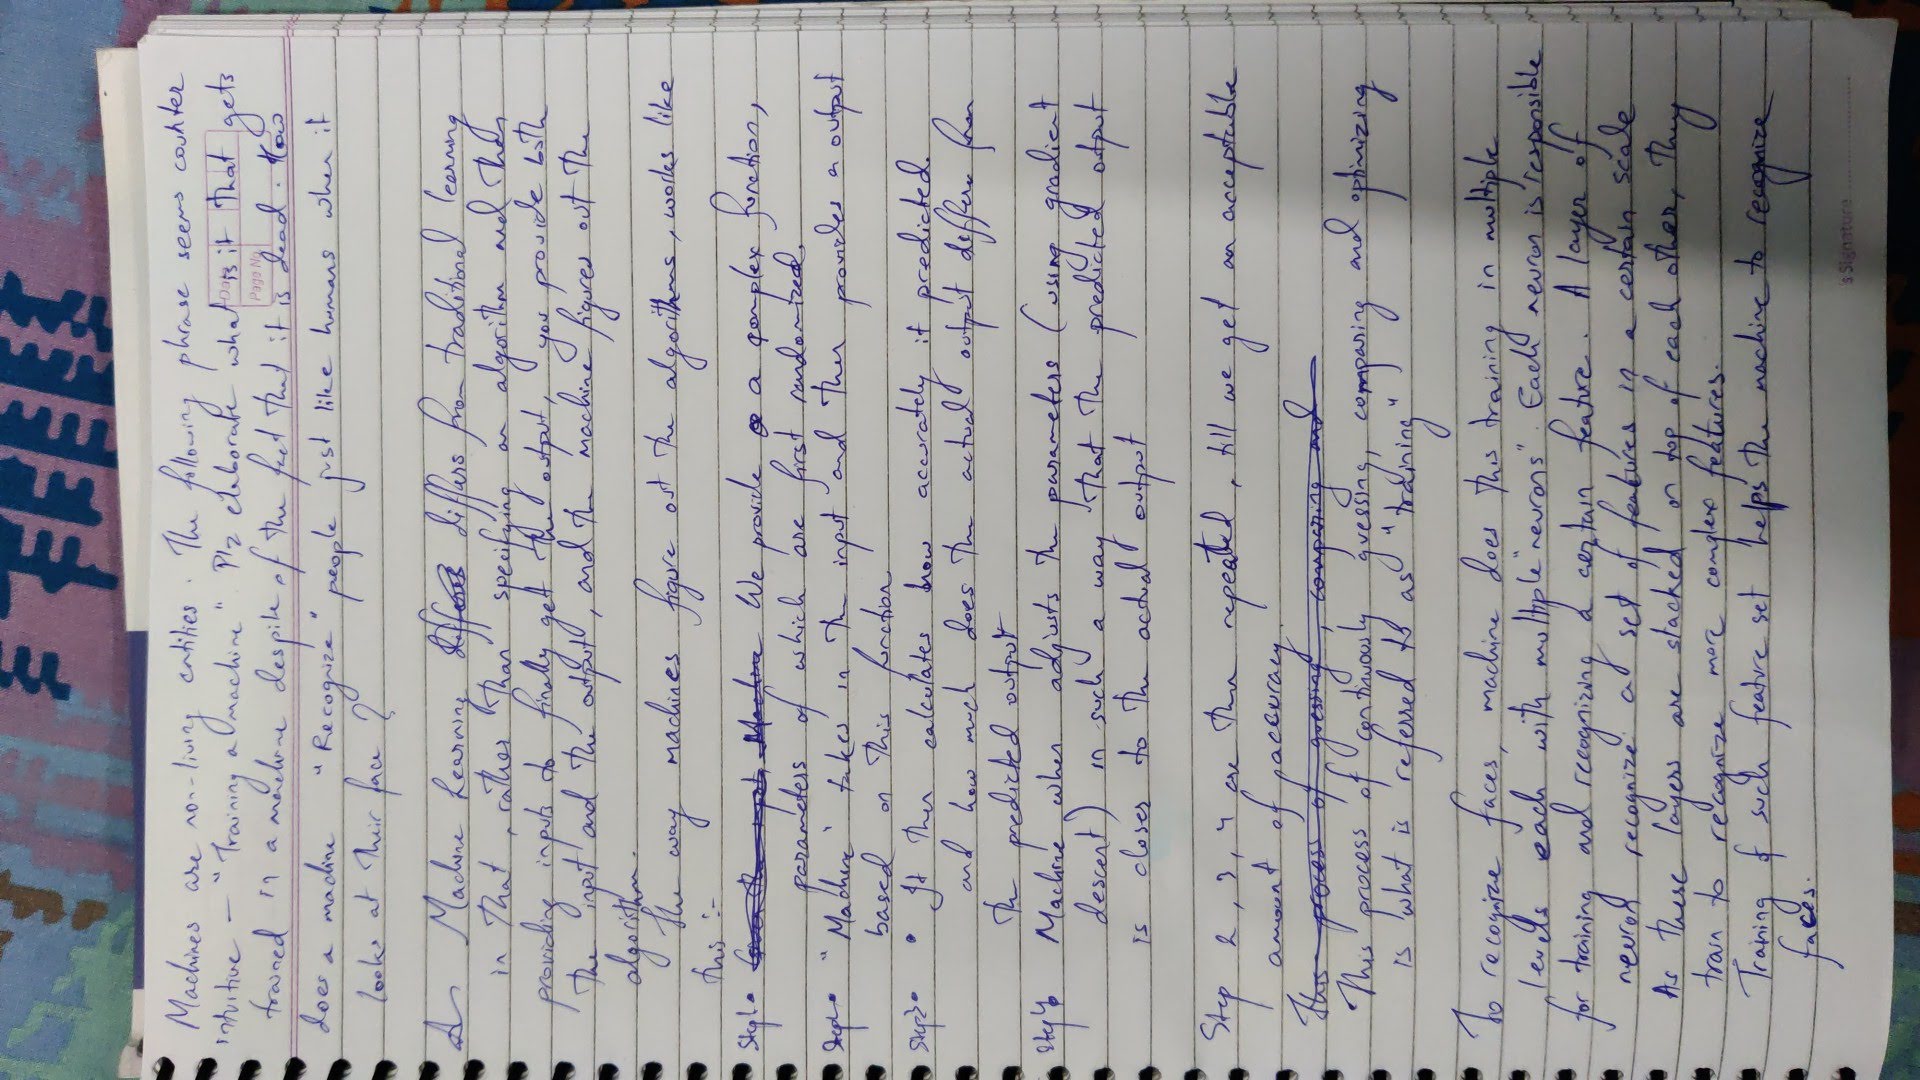 Machines are non-living entities. The following phrase seems counter
intuitive - "Training a machine" Plz elaborate what is it that gets
Page No
trained in a machine despite of the fact that it is dead. How
does a machine "Recognize" people just like humans when it
looks at their face?
Machine Learning differs from traditional learning
in that, rather than specifying an algorithm and then
providing inputs to finally get the output, you provide both
the input and the output, and the machine figures out the
algorithm.
The way machines figure out the algorithms, works like
this :-
Step1• We provide a complex function,
parameters of which are first randomized.
Step2• "Machine" takes in the input and then provides a output
based on this function
Step3• • It then calculates how accurately it predicted.
and how much does the actual output differ from
the predicted output
Step4• Machine when adjusts the parameters (using gradient
descent) in such a way that the predicted output
is closer to the actual output
Step 2, 3, 4 are then repeated, till we get an acceptable
amount of accuracy.
This process of guessing, comparing and
This process of continuously guessing, comparing and optimizing
is what is referred to as "training"
To recognize faces, machine does this training in multiple
levels each with multiple "neurons". Each neuron is responsible
for training and recognizing a certain feature. A layer of
neuron recognize a set of features in a certain scale
As these layers are stacked on top of each other, they
train to recognize more complex features.
Training of such feature set helps the machine to recognize
faces.
's Signature